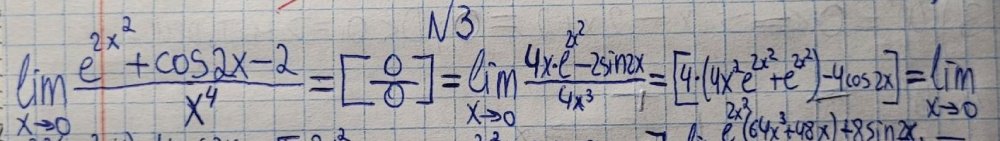 N3
lim x→0 (e^{2x^2} + cos2x - 2)/x^4 = [0/0] = lim x→0 (4x·e^{2x^2} - 2sin2x)/4x^3 = [4·(4x^2e^{2x^2} + e^{2x^2}) - 4cos2x] = lim x→0
e^{2x^2}(64x^3+48x)+8sin2x